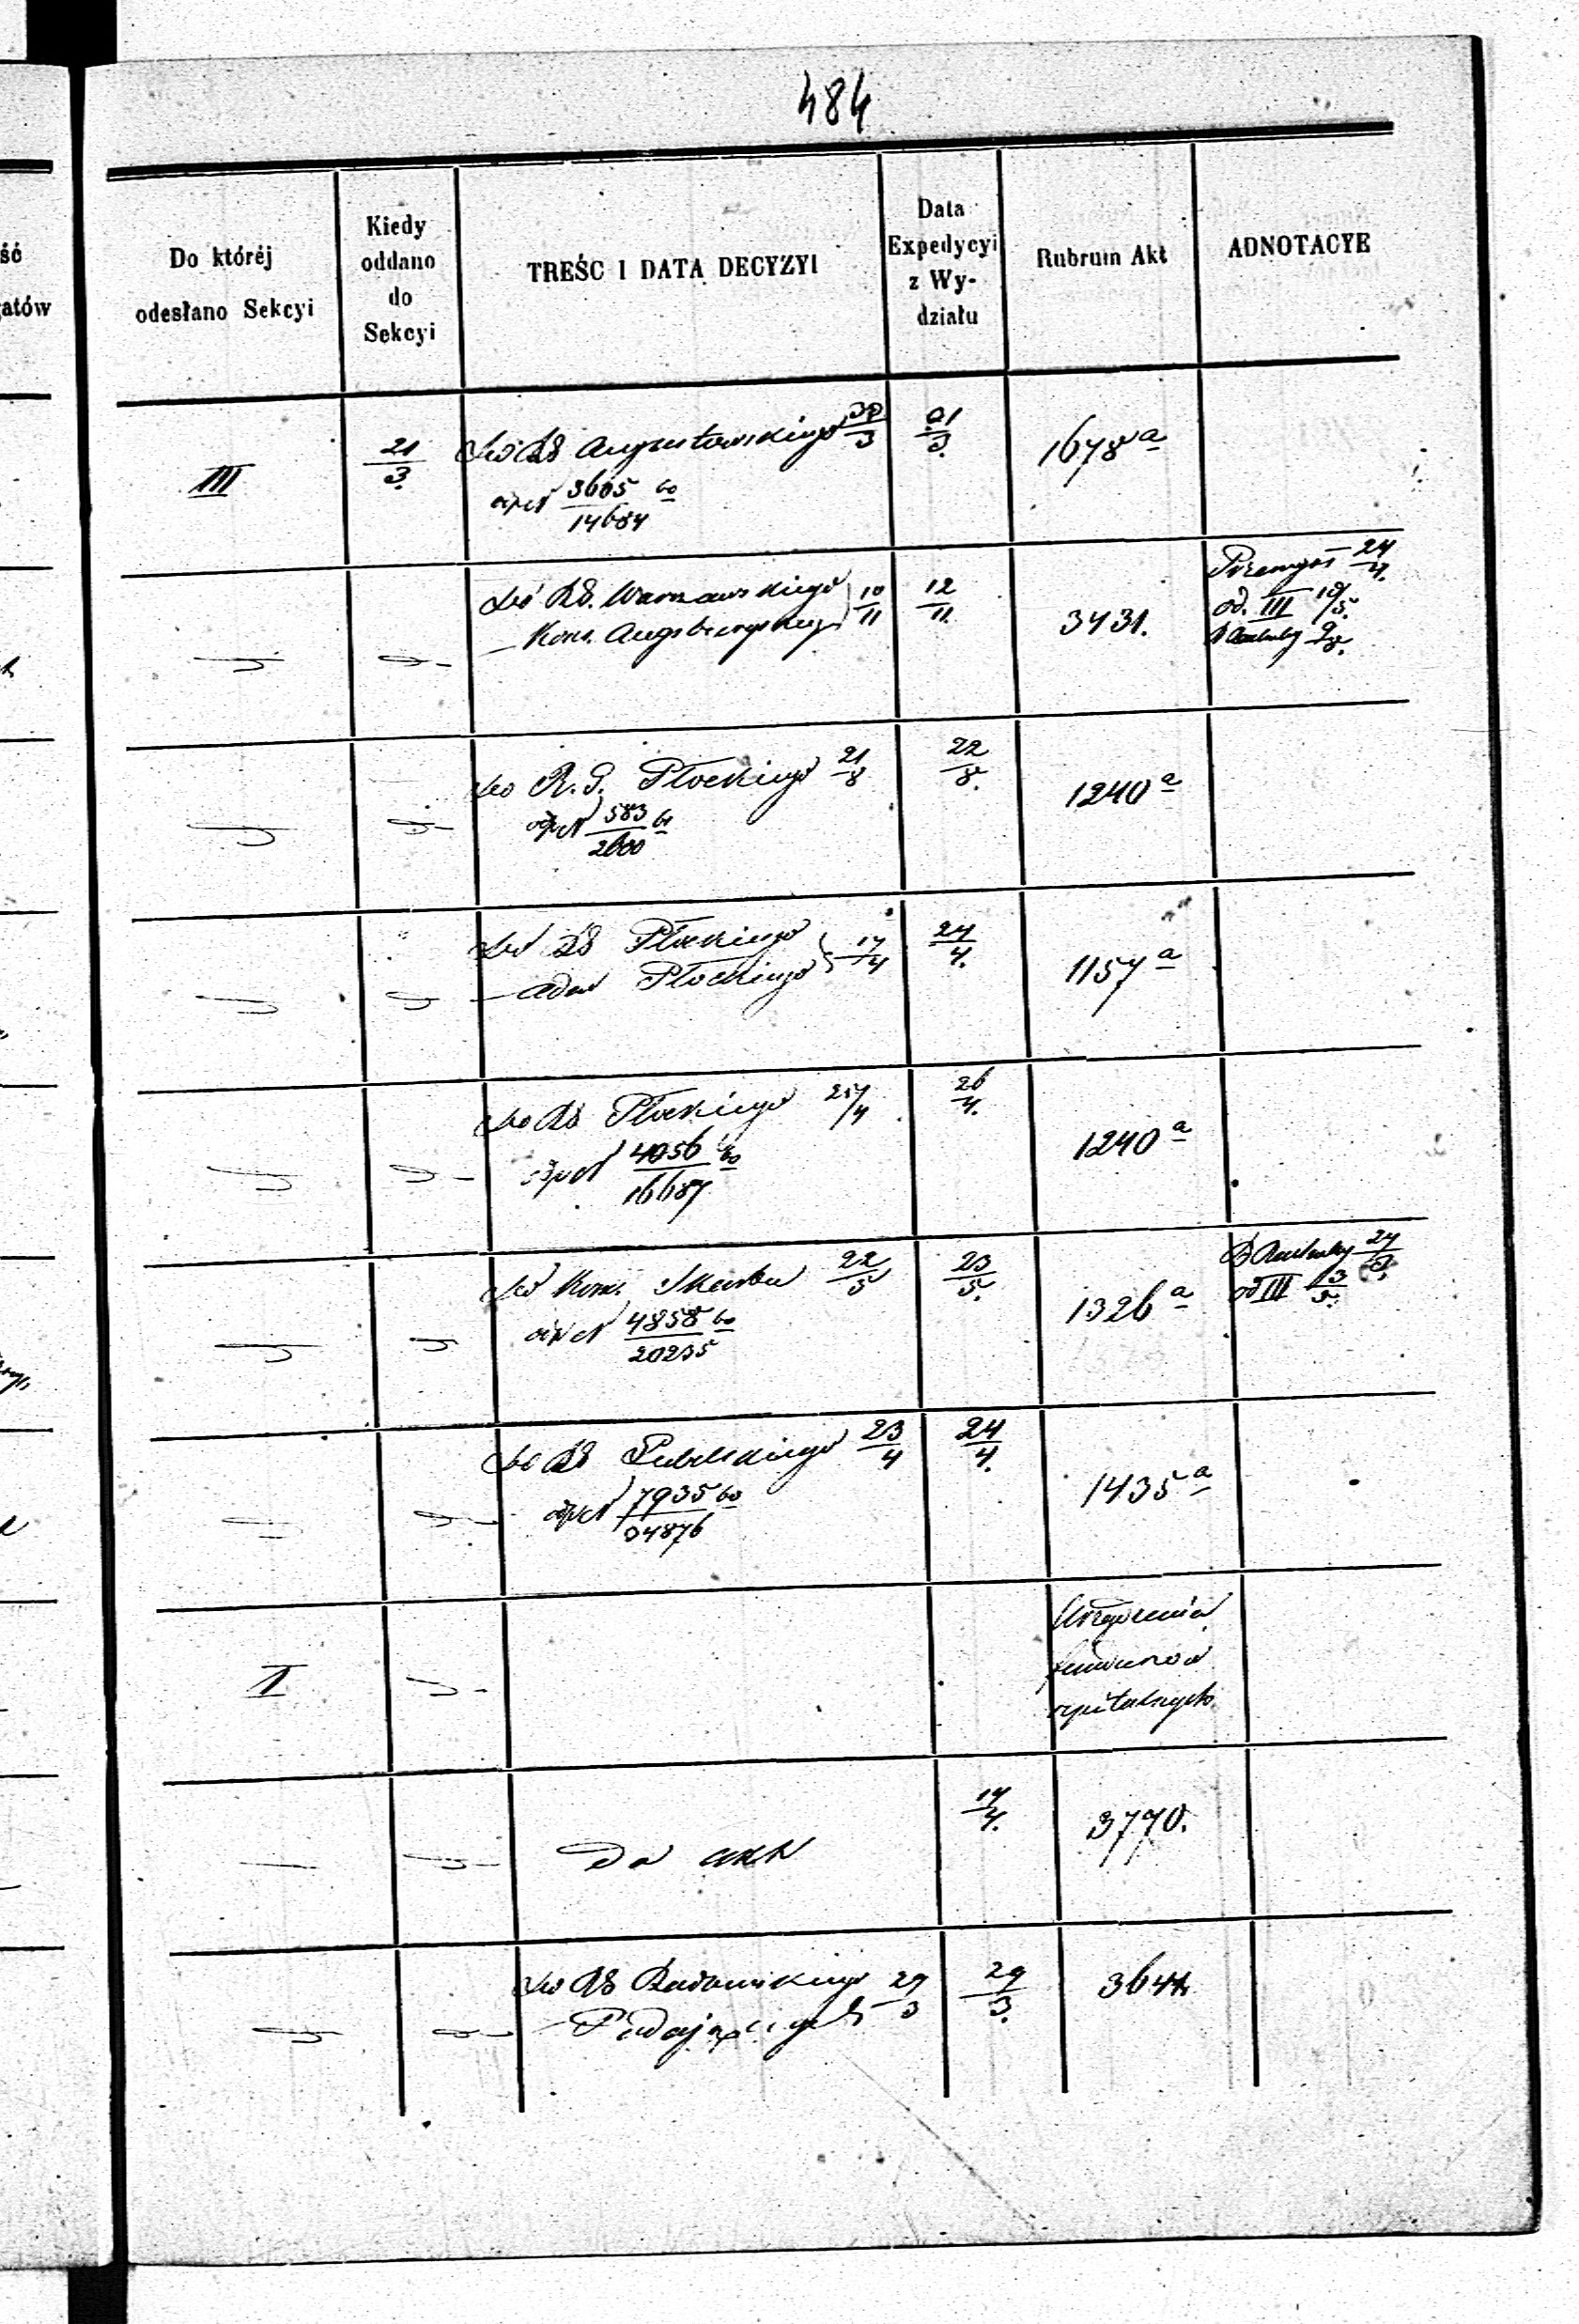 484
Do któréj
odesłano Sekcyi
Kiedy
oddano
do
Sekcyi
TREŚC I DATA DECYZYI
Data
Expedycyi
z Wy-
działu
Rubrum Akt
ADNOTACYE
ść
gatów
III
21/3.
Do RG Augustowskiego 30/3
3605/14684
21/3.
1678 a
Do RG. Warszawskiego
Kons. Augsburgskiego 10/11
12/11.
3431.
24/4.
od. III 10/5.
Do R. G. Płockiego 21/8
583/2600
22/8.
1240 a
Do RG Płockiego
Płockiego 17/4
24/4.
1157 a
Do RG Płockiego 25/4
4056/16687
26/4.
1240 a
Do Kom. Skarbu 22/5
4858/20235
23/5.
1326 a
od III 3/5.
Do RG Lubelskiego 23/4
7935/34876
24/4.
1435 a
I
Urządzenia
funduszów
szpitalnych
Do akt
17/4.
3770.
Do RG Radomskiego 29/3
29/3.
364